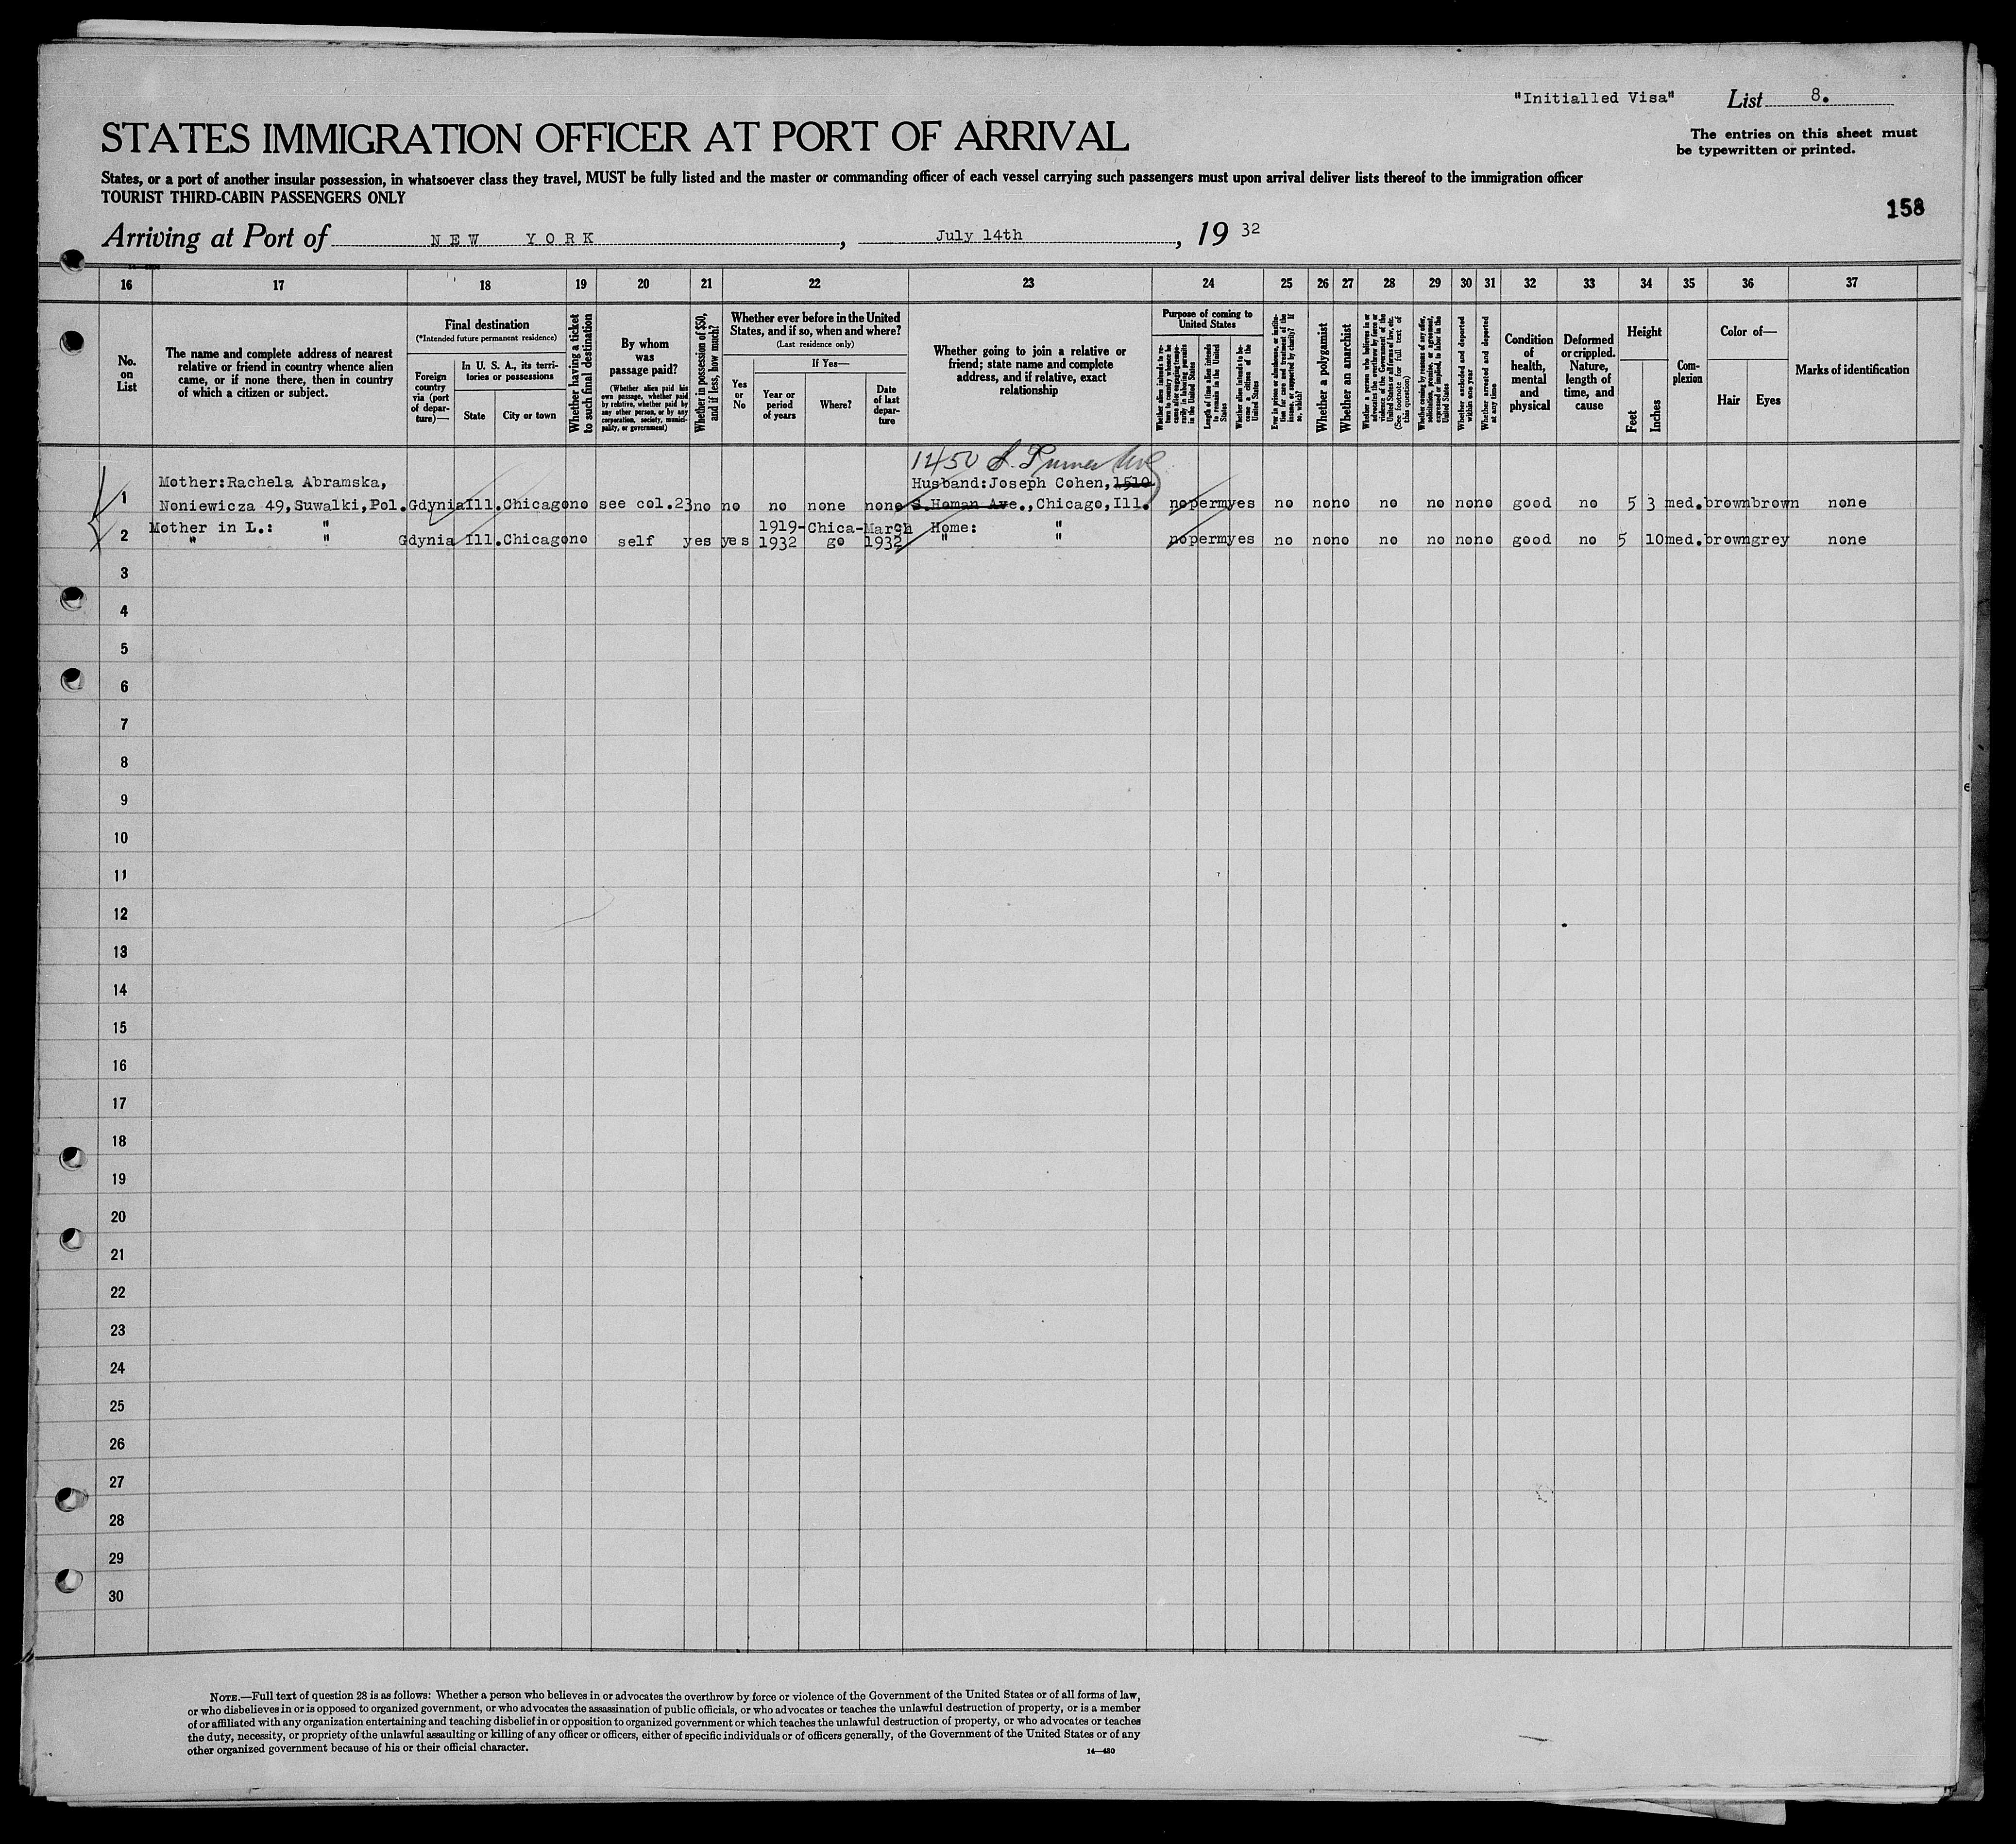 "Initialled Visa" List 8.
STATES IMMIGRATION OFFICER AT PORT OF ARRIVAL
The entries on this sheet must
be typewritten or printed.
States, or a port of another insular possession, in whatsoever class they travel, MUST be fully listed and the master or commanding officer of each vessel carrying such passengers must upon arrival deliver lists thereof to the immigration officer
TOURIST THIRD-CABIN PASSENGERS ONLY
158
Arriving at Port of NEW YORK, July 14th, 19 32
16 17 18 19 20 21 22 23 24 25 26 27 28 29 30 31 32 33 34 35 36 37
No.
on
List
The name and complete address of nearest
relative or friend in country whence alien
came, or if none there, then in country
of which a citizen or subject.
Final destination
(*Intended future permanent residence)
Foreign
country
via (port
of depar-
ture)—
In U. S. A., its terri-
tories or possessions
State
City or town
Whether having a ticket
to such final destination
By whom
was
passage paid?
(Whether alien paid his
own passage, whether paid
by relative, whether paid by
any other person, or by any
corporation, society, munici-
pality, or government)
Whether in possession of $50,
and if less, how much?
Whether ever before in the United
States, and if so, when and where?
(Last residence only)
Yes
or
No
If Yes—
Year or
period
of years
Where?
Date
of last
depar-
ture
Whether going to join a relative or
friend; state name and complete
address, and if relative, exact
relationship
Purpose of coming to
United States
Whether alien intends to re-
turn to country whence he
came after engaging tempo-
rarily in laboring pursuits
in the United States
Length of time alien intends
to remain in the United
States
Whether alien intends to be-
come a citizen of the
United States
Ever in prison or almshouse, or institu-
tion for care and treatment of the
insane, or supported by charity? If
so, which?
Whether a polygamist
Whether an anarchist
Whether a person who believes in or
advocates the overthrow by force or
violence of the Government of the
United States or all forms of law, etc.
(See footnote for full text of
this question)
Whether coming by reason of any offer,
solicitation, promise, or agreement,
expressed or implied, to labor in the
United States
Whether excluded and deported
within one year
Whether arrested and deported
at any time
Condition
of
health,
mental
and
physical
Deformed
or crippled.
Nature,
length of
time, and
cause
Height
Feet
Inches
Com-
plexion
Color of—
Hair
Eyes
Marks of identification
1450 S.
Mother:Rachela Abramska, Husband:Joseph Cohen, 1510
1 Noniewicza 49,Suwalki,Pol. Gdynia Ill. Chicago no see col.23 no no no none none S.Homan Ave.,Chicago,Ill. no perm yes no no no no no no no good no 5 3 med. brown brown none
Mother in L.: " 1919- Chica- March Home: "
2 " " Gdynia Ill. Chicago no self yes yes 1932 go 1932 " " no perm yes no no no no no no no good no 5 10 med. brown grey none
3
4
5
6
7
8
9
10
11
12
13
14
15
16
17
18
19
20
21
22
23
24
25
26
27
28
29
30
NOTE.—Full text of question 28 is as follows: Whether a person who believes in or advocates the overthrow by force or violence of the Government of the United States or of all forms of law,
or who disbelieves in or is opposed to organized government, or who advocates the assassination of public officials, or who advocates or teaches the unlawful destruction of property, or is a member
of or affiliated with any organization entertaining and teaching disbelief in or opposition to organized government or which teaches the unlawful destruction of property, or who advocates or teaches
the duty, necessity, or propriety of the unlawful assaulting or killing of any officer or officers, either of specific individuals or of officers generally, of the Government of the United States or of any
other organized government because of his or their official character.
14—430